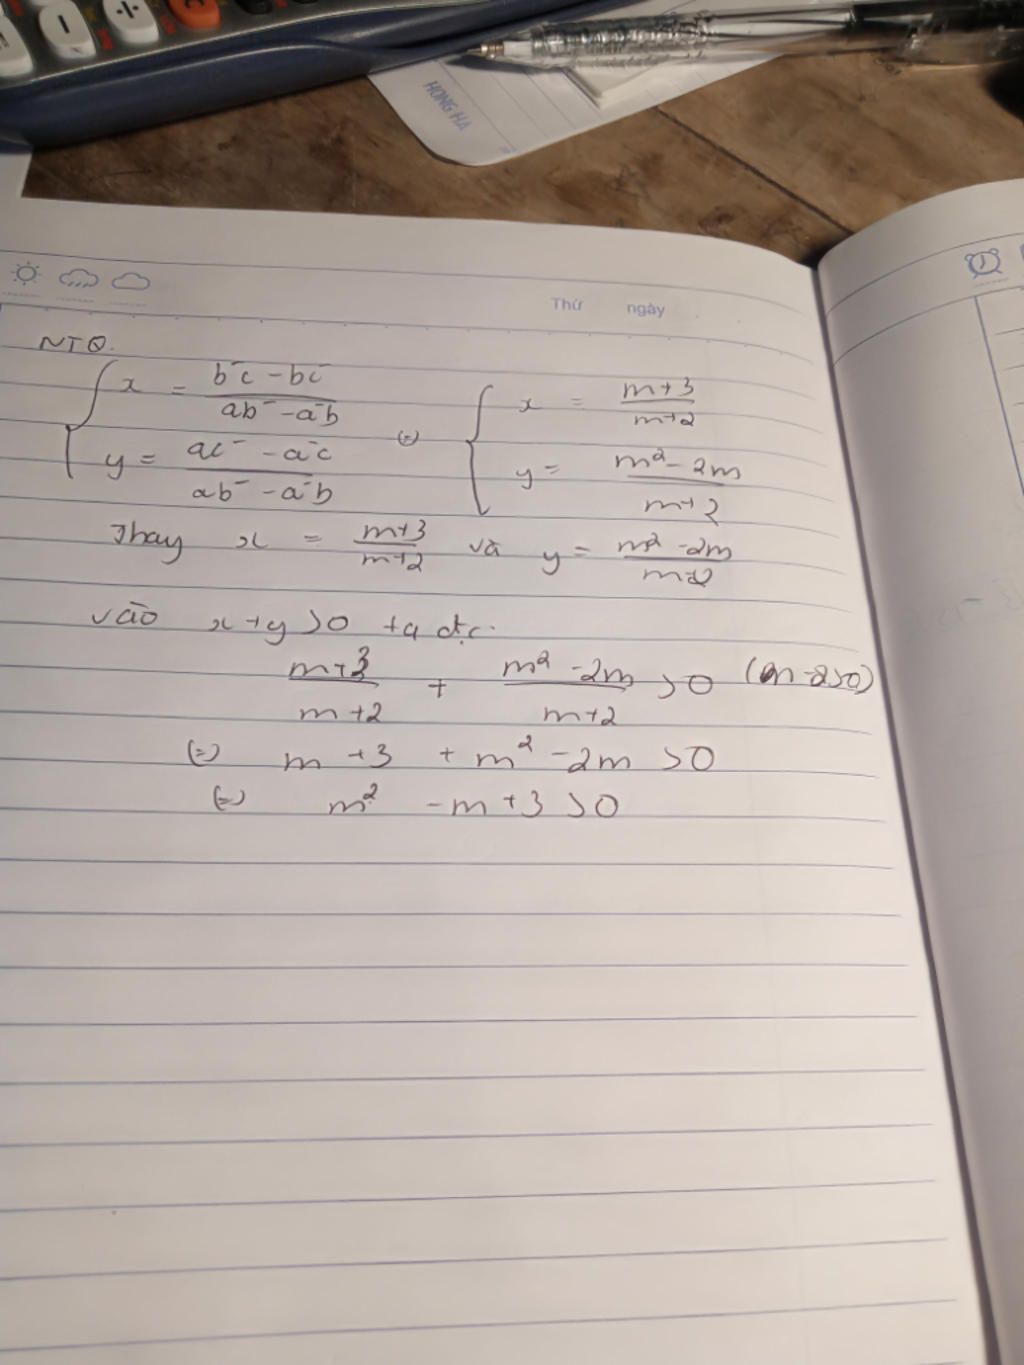 HONG HA
Thứ ngày
NTQ.
x = b'c - bc' / ab' - a'b (=) x = m+3 / m+2
y = ac' - a'c / ab' - a'b y = m² - 2m / m+2
Thay x = m+3 / m+2 và y = m² - 2m / m+2
vào x+y>0 ta đc:
m+3 / m+2 + m² - 2m / m+2 > 0 (m-2>0)
(=) m +3 + m² - 2m > 0
(=) m² - m + 3 > 0